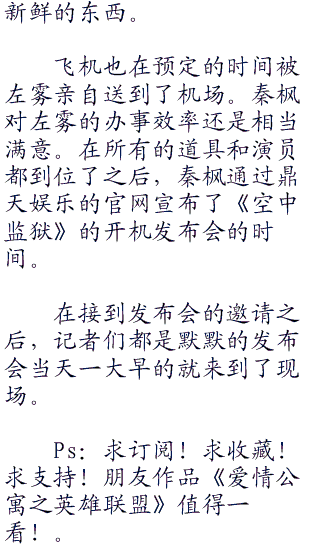 新鲜的东西。
飞机也在预定的时间被
左雾亲自送到了机场。秦枫
对左雾的办事效率还是相当
满意。在所有的道具和演员
都到位了之后，秦枫通过鼎
天娱乐的官网宣布了《空中
监狱》的开机发布会的时
间。
在接到发布会的邀请之
后，记者们都是默默的发布
会当天一大早的就来到了现
场。
Ps：求订阅！求收藏！
求支持！朋友作品《爱情公
寓之英雄联盟》值得一
看！。